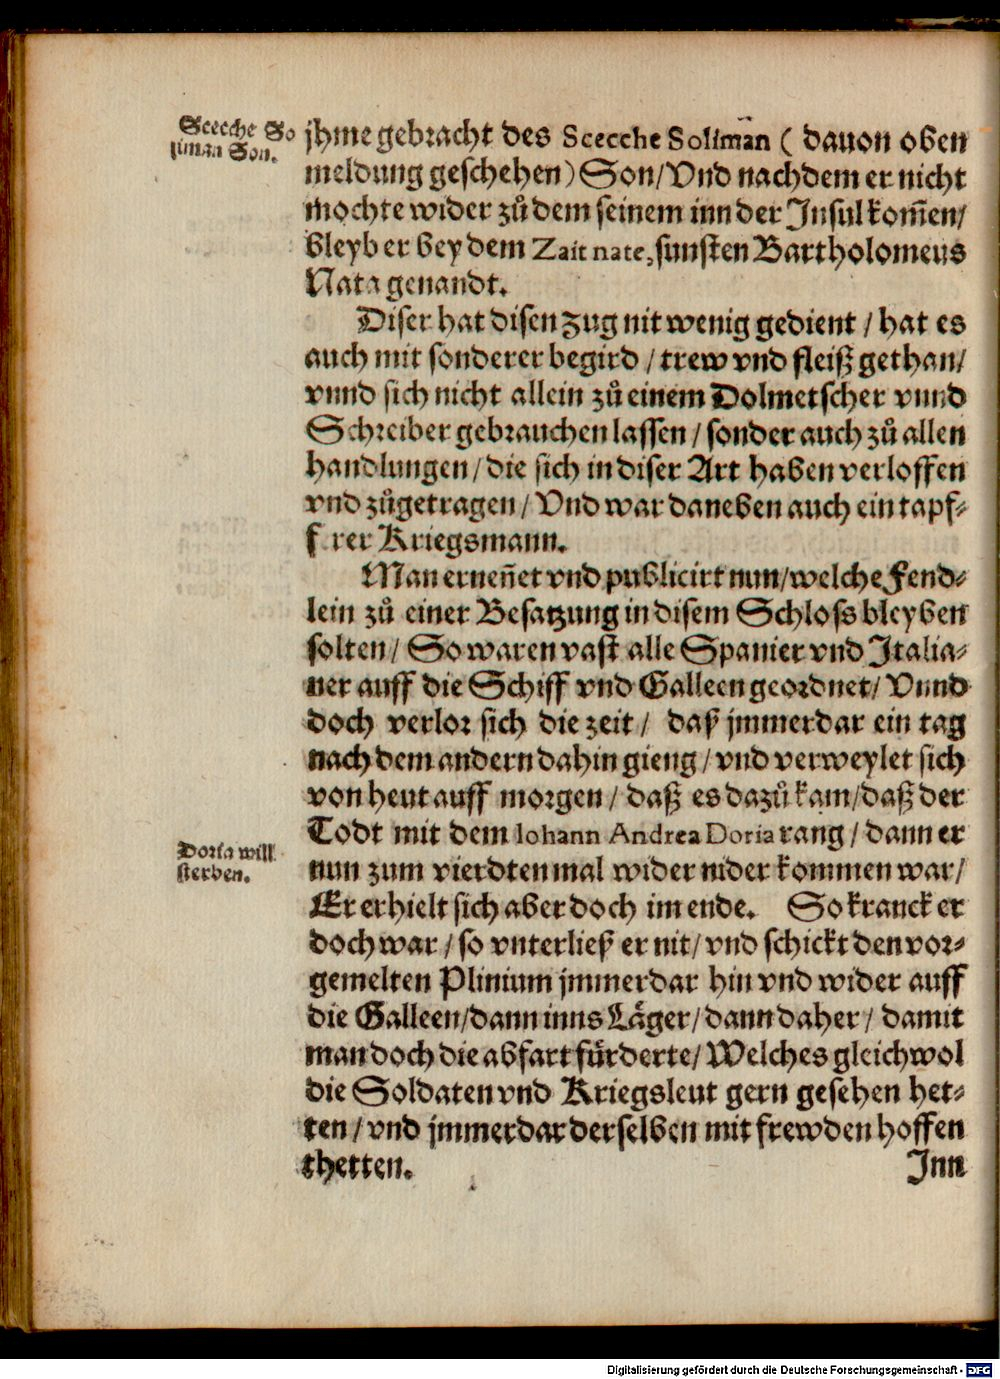 Scecche So
liman Son.
jhme gebracht des Scecche Soliman ( dauon oben
meldung geschehen) Son/ Vnd nachdem er nicht
mochte wider zů dem seinem inn der Insul kom̃en/
bleyb er bey dem Zait nate, sunsten Bartholomeus
Nata genandt.
Diser hat disen zug nit wenig gedient / hat es
auch mit sonderer begird / trew vnd fleiß gethan/
vnnd sich nicht allein zů einem Dolmetscher vnnd
Schreiber gebrauchen lassen / sonder auch zů allen
handlungen / die sich in diser Art haben verloffen
vnd zůgetragen / Vnd war daneben auch ein tapf-
f rer Kriegsmann.
Man erneñet vnd publicirt nun/ welche Fend-
lein zů einer Besatzung in disem Schloss bleyben
solten / So waren vast alle Spanier vnd Italia-
ner auff die Schiff vnd Galleen geordnet/ Vnnd
doch verlor sich die zeit / daß jmmerdar ein tag
nach dem andern dahin gieng / vnd verweylet sich
von heut auff morgen / daß es dazů kam/ daß der
Todt mit dem Iohann Andrea Doria rang / dann er
nun zum vierdten mal wider nider kommen war/
Er erhielt sich aber doch im ende. So kranck er
doch war / so vnterließ er nit/ vnd schickt den vor-
gemelten Plinium jmmerdar hin vnd wider auff
die Galleen/ dann inns Läger/ dann daher / damit
man doch die abfart fürderte/ Welches gleichwol
die Soldaten vnd Kriegsleut gern gesehen het-
ten / vnd jmmerdar derselben mit frewden hoffen
thetten.
Inn
Doria will
sterben.
Digitalisierung gefördert durch die Deutsche Forschungsgemeinschaft - DFG